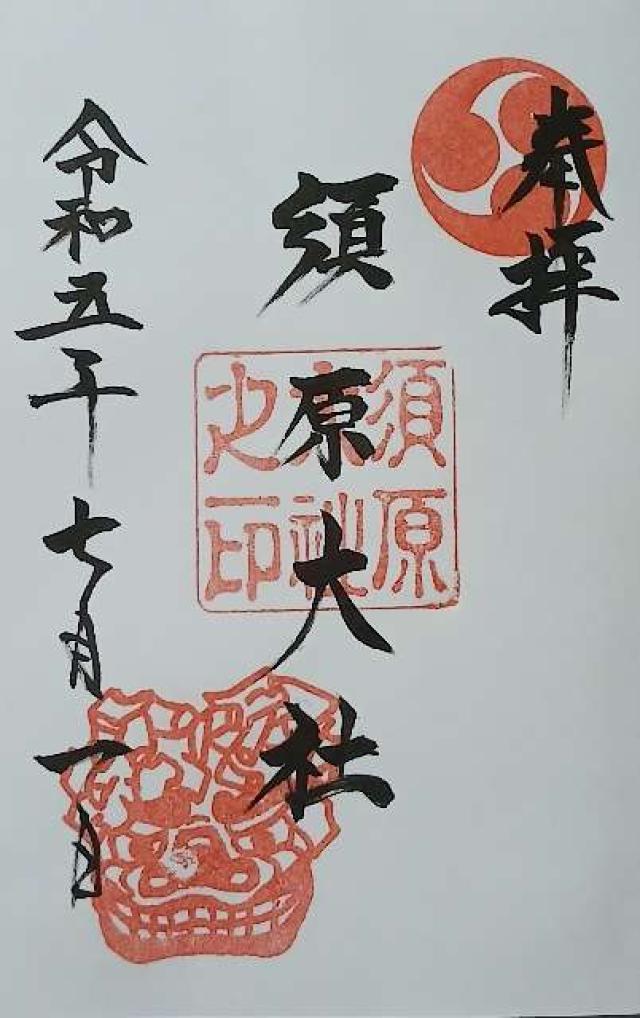 奉拝
須原大社
須原大社之印
令和五年七月一日